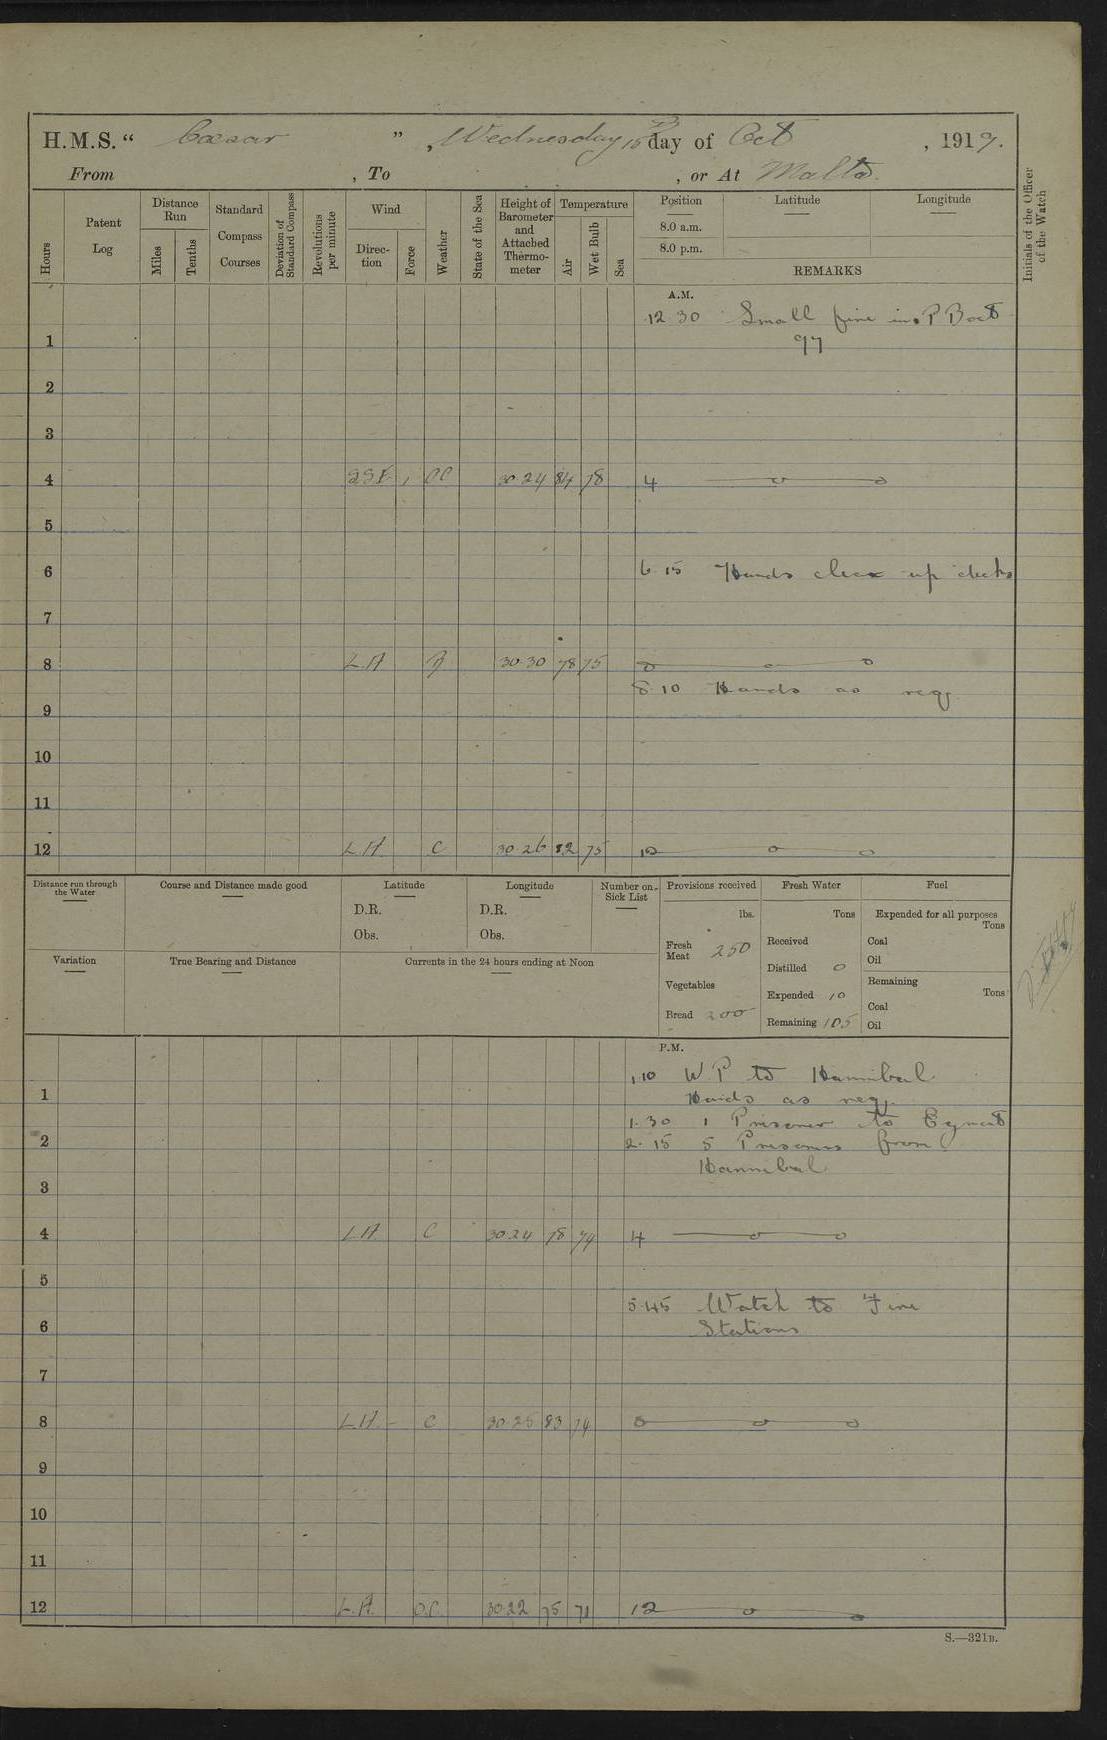 H.M.S. “ Cæsar ”, Wednesday 15th day of Oct, 1919.
From , To , or At Malta.
Hours
Patent Log
Distance Run
Miles
Tenths
Standard Compass Courses
Deviation of Standard Compass
Revolutions per minute
Wind
Direction
Force
Weather
State of the Sea
Height of Barometer and Attached Thermometer
Temperature
Air
Wet Bulb
Sea
Position Latitude Longitude
8.0 a.m.
8.0 p.m.
REMARKS
Initials of the Officer of the Watch
A.M.
12 30 Small fire in P Boat
97
1
2
3
4 SSE 1 OC 30·24 84 78 4
5
6 6.15 Hands clear up decks
7
8 L.A B 30·30 78 75 8
8 10 Hands as req
9
10
11
12 L.A. C 30·26 82 75 12
Distance run through the Water
Course and Distance made good
Latitude
D.R.
Obs.
Longitude
D.R.
Obs.
Number on Sick List
Provisions received
lbs.
Fresh Meat 250
Vegetables
Bread 200
Fresh Water
Tons
Received
Distilled 0
Expended 10
Remaining 105
Fuel
Expended for all purposes
Tons
Coal
Oil
Remaining
Tons
Coal
Oil
Variation
True Bearing and Distance
Currents in the 24 hours ending at Noon
P.M.
1.10 W P to Hannibal
1 Hands as req.
1.30 1 Prisoner to Egmont
2 2.15 5 Prisoners from
Hannibal
3
4 L A C 30·24 78 74 4
5
5.45 Watch to Fire
6 Stations
7
8 L.A. C 30·25 83 74 8
9
10
11
12 L.A. O.C. 30·22 75 71 12
S.—321B.